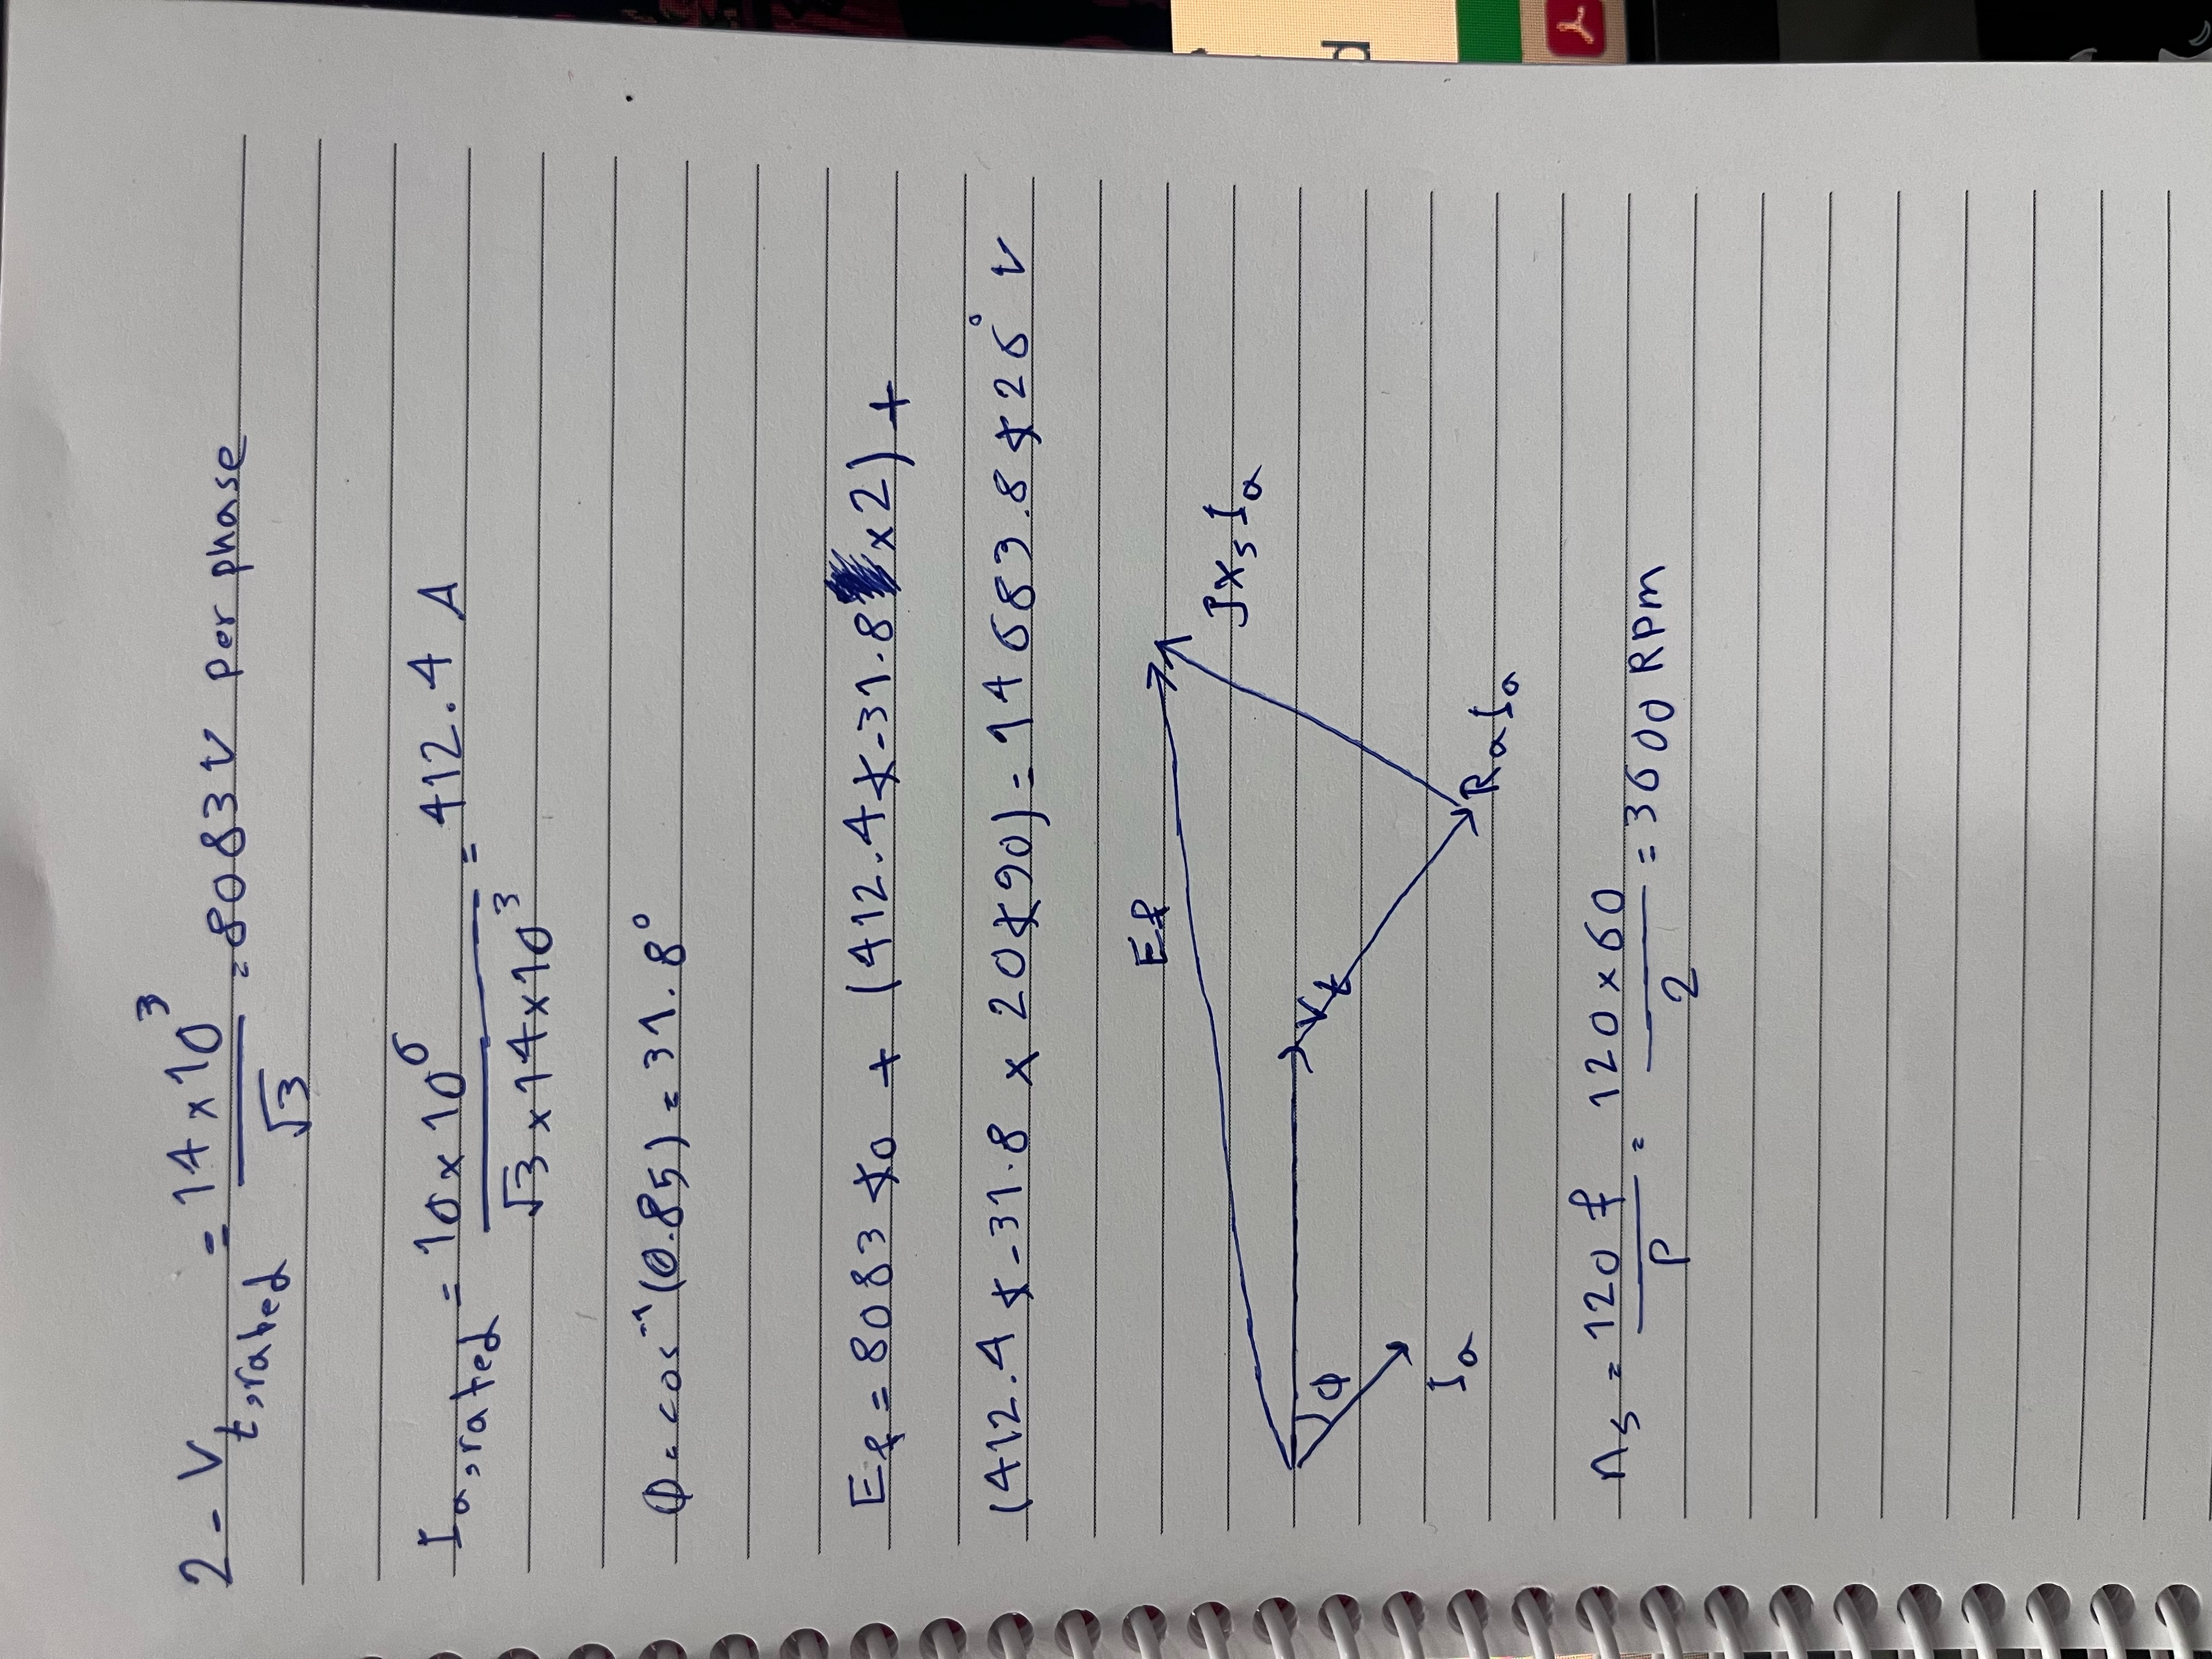 2- Vt,rated = 14×10³/√3 = 8083 V per phase
Ia,rated = 10×10⁶/√3×14×10³ = 412.4 A
ϕ = cos⁻¹(0.85) = 31.8°
Ef = 8083∡0 + (412.4∡-31.8 ×2) +
(412.4∡-31.8 × 20∡90) = 14683.8∡26° V
Ef
JXsIa
Vt
ϕ
Ia
RaIa
ns = 120f/P = 120×60/2 = 3600 RPm